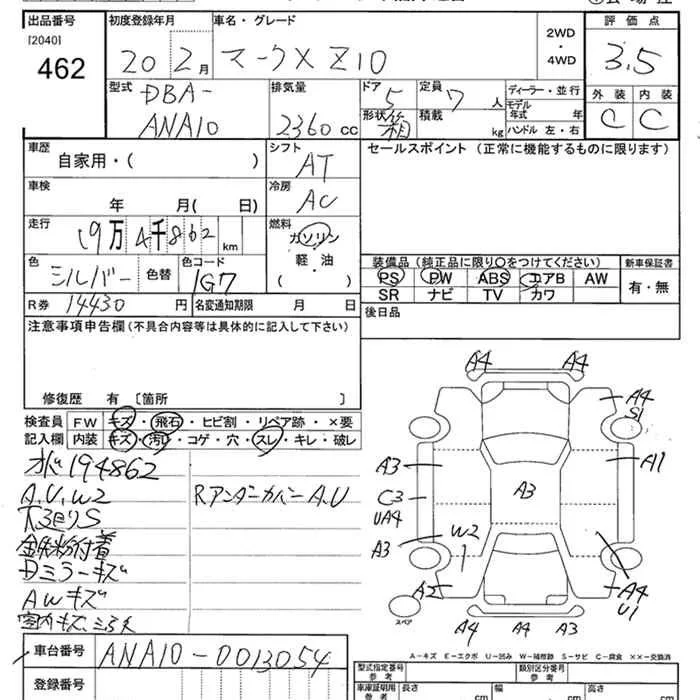 出品番号
[2040]
462
初度登録年月
20 2月
車名・グレード
マークX Z10
2WD
・
4WD
評価点
3.5
型式
DBA-
ANA10
排気量
2360 cc
ドア
5
形状
定員
7 人
積載
kg
ディーラー・並行
モデル
年式 年
ハンドル 左・右
外装 内装
C C
車歴
自家用・( )
シフト
AT
車検
年 月( 日)
冷房
AC
走行
19万4千862 km
燃料
ガソリン
・
軽・油
色
シルバー
色替
色コード
1G7
R券 14430 円
名変通知期限 月 日
セールスポイント(正常に機能するものに限ります)
装備品(純正品に限り〇をつけてください)
PS PW ABS エアB AW
SR ナビ TV カワ
新車保証書
有・無
後日品
注意事項申告欄(不具合内容等は具体的に記入して下さい)
修復歴 有 〔箇所 〕
検査員
記入欄
FW キズ・飛石・ヒビ割・リペア跡・×要
内装 キズ・汚れ・コゲ・穴・スレ・キレ・破レ
194862
A.U.W2
下廻りS
鉄粉付着
Dミラーキズ
AWキズ
室内キズ
RアンダーカバーA.U
A4 A4
A4
S1
A3
A1
C3
UA4
A3
A3
W2
A2
A4
U1
スペア
A4 A4 A3
A-キズ E-エクボ U-凹み W-補修跡 S-サビ C-腐食 ××-交換済
車台番号 ANA10-0013054
登録番号
型式指定番号
参考
類別区分番号
参考
車庫証明用
参考
長さ
cm
幅
cm
高さ
cm